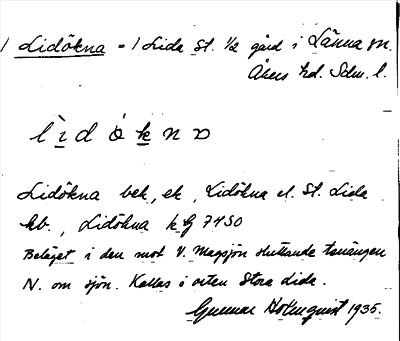 / Lidökna = / Lida St. 1/2 gård i Länna sn.
Åkers hd. Sdm. l.
lìdökna
Lidökna bek, ek, Lidökna el. St. Lida
kb., Lidökna k G 7450
Beläget i den mot V. Magsjön sluttande terrängen
N. om sjön. Kallas i orten Stora Lida.
Gunnar Holmquist 1935.